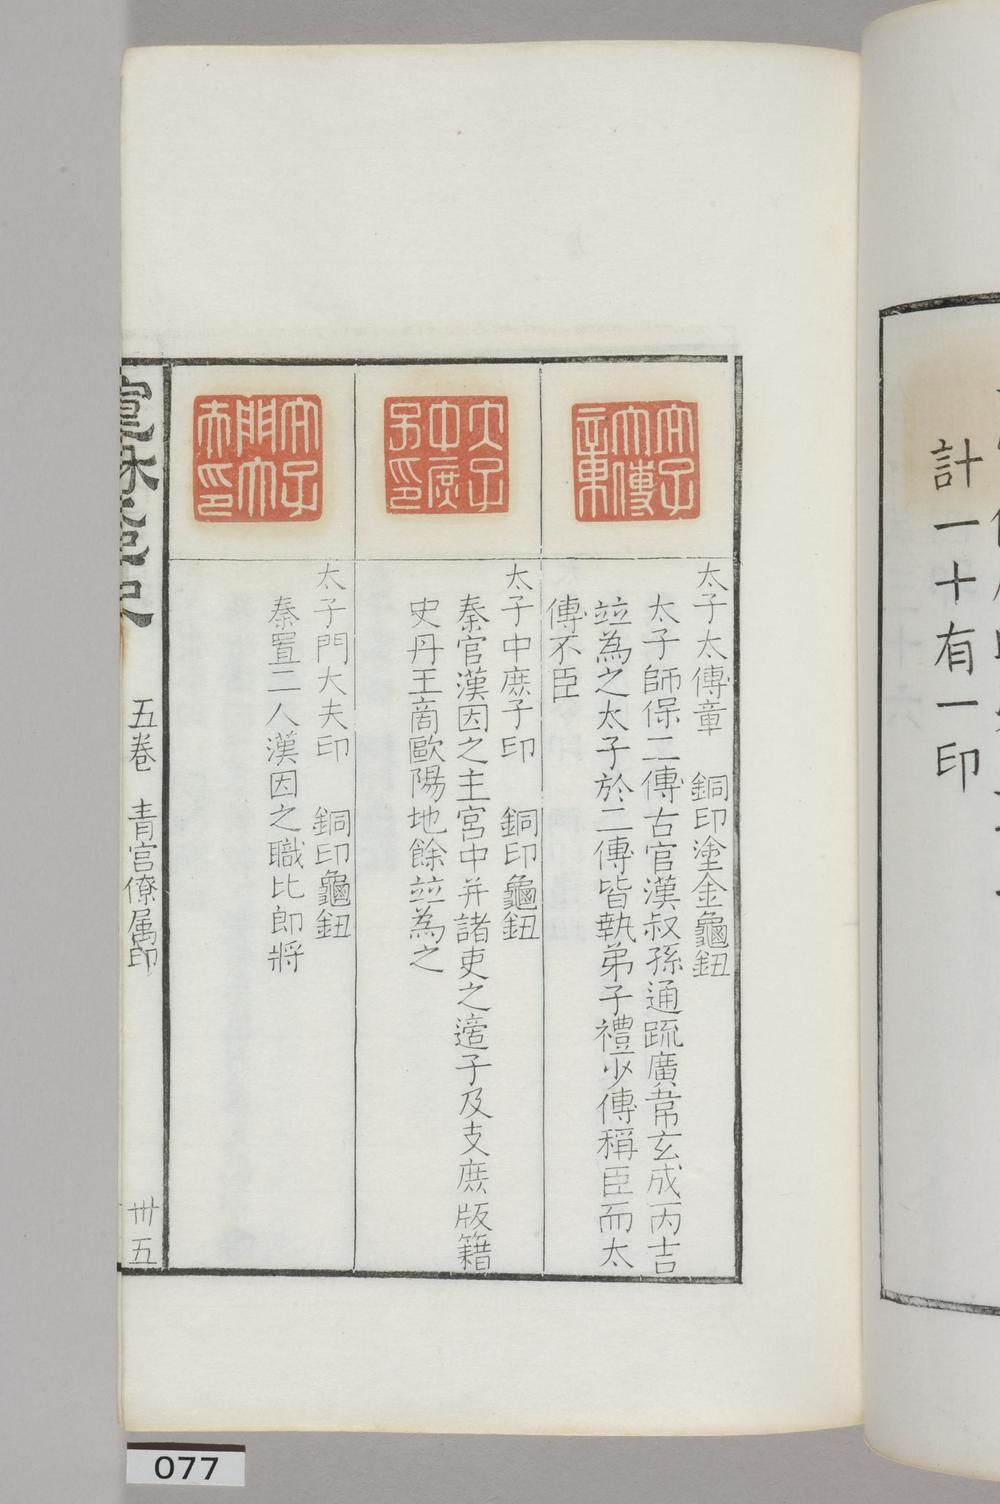 計一十有一印
太子太傅章 銅印塗金龜鈕
太子師保二傅古官漢叔孫通疏廣韋玄成丙吉
竝為之太子於二傅皆執弟子禮少傅稱臣而太
傅不臣
太子中庶子印 銅印龜鈕
秦官漢因之主宮中并諸吏之適子及支庶版籍
史丹王商歐陽地餘竝為之
太子門大夫印 銅印龜鈕
秦置二人漢因之職比郎將
五卷 青宮僚属印
卅五
077